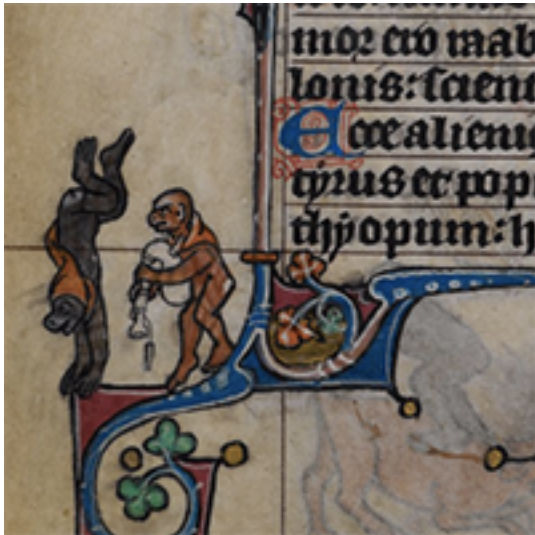 mor ero raab
lonis: scient
Ecce alienig
tyrus et pop
thyopum: h